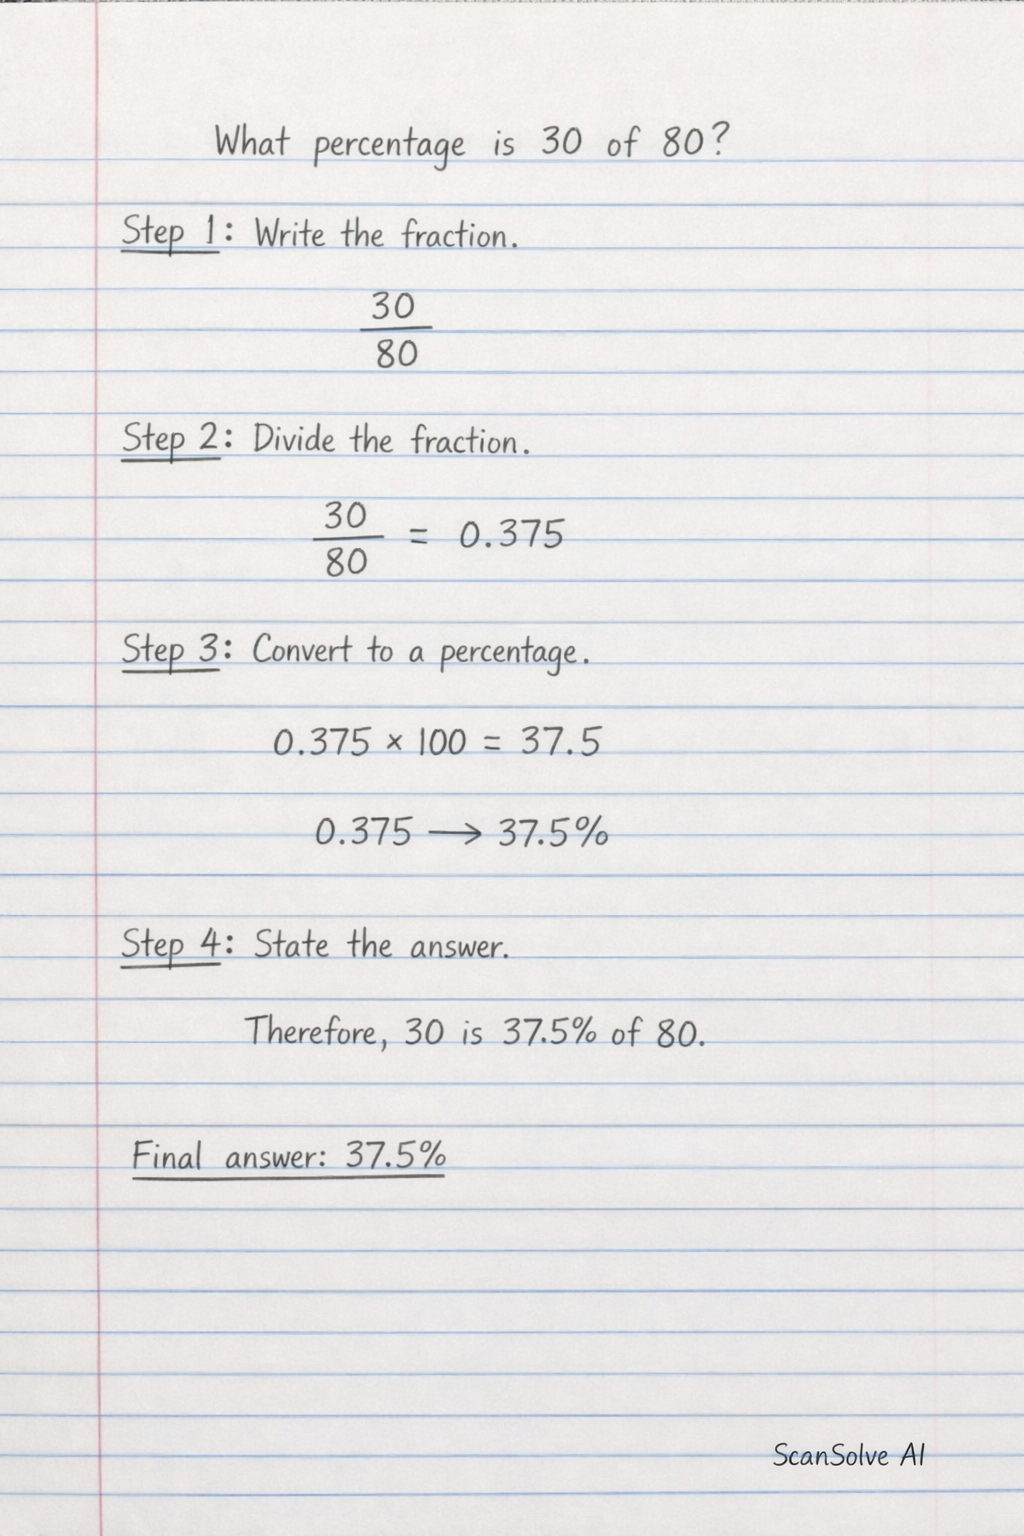 What percentage is 30 of 80?
Step 1: Write the fraction.
30
80
Step 2: Divide the fraction.
30
80
= 0.375
Step 3: Convert to a percentage.
0.375 × 100 = 37.5
0.375 → 37.5%
Step 4: State the answer.
Therefore, 30 is 37.5% of 80.
Final answer: 37.5%
ScanSolve AI